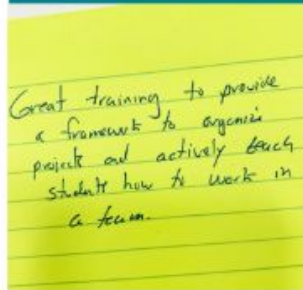 Great training to provide
a framework to organize
projects and actively teach
students how to work in
a team.